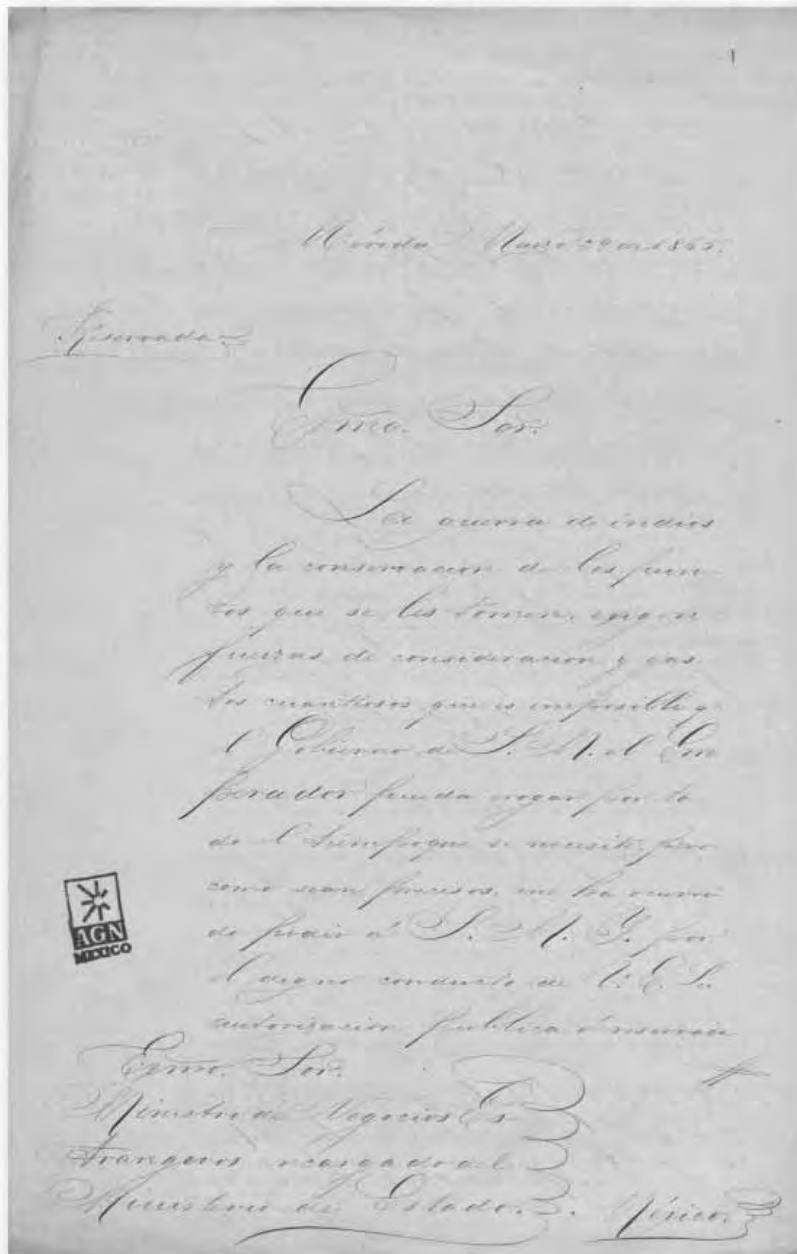 1
Mérida Marzo 29 de 1865.
Reservada
Exmo. Sor.
La guerra de indios
y la conservacion de los pun-
tos que se les tomen, exigen
fuerzas de consideracion y gas-
tos cuantiosos que es imposible q.
el Gobierno de S. M. el Em
perador pueda erogar por to
do el tiempo que se necesite; pero
como sean precisos, me ha ocurri
do pedir á S. M. Y. por
el digno conducto de V. E. la
autorizacion publica ó reservada
AGN
MEXICO
Exmo. Sor.
Ministro de Negocios Es
trangeros encargado del
Ministerio de Estado. México.